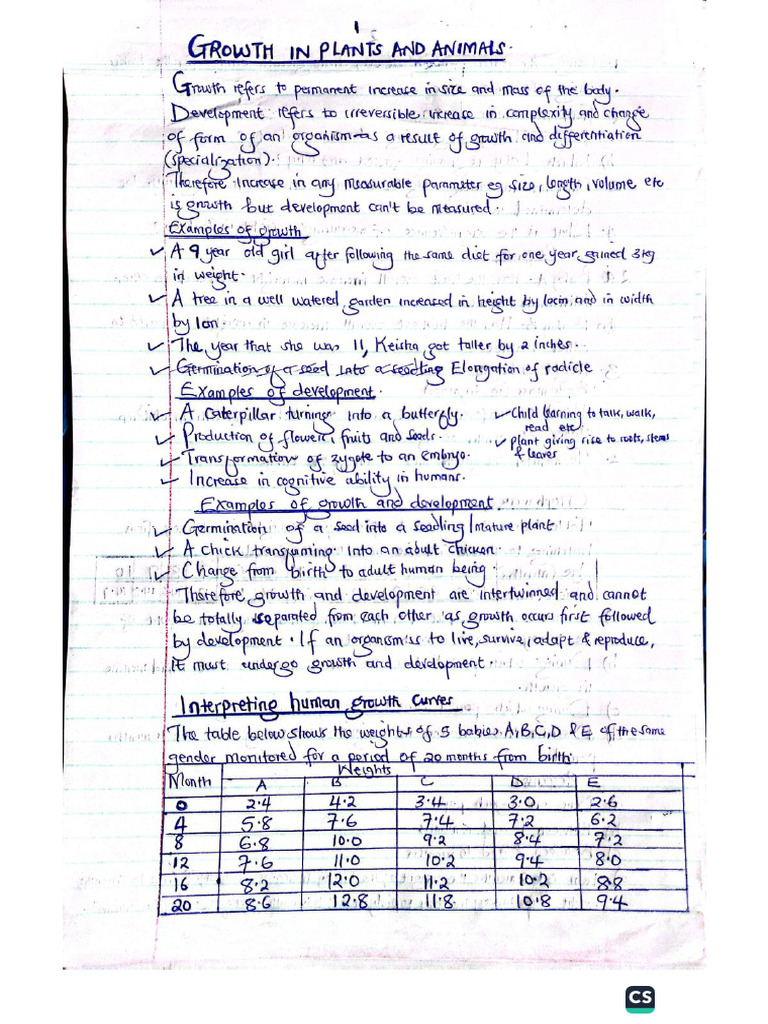 1
GROWTH IN PLANTS AND ANIMALS.
Growth refers to permanent increase in size and mass of the body.
Development refers to irreversible increase in complexity and change
of form of an organism as a result of growth and differentiation
(specialization).
Therefore increase in any measurable parameter eg size, length, volume etc
is growth but development can't be measured.
Examples of growth
✓ A 9 year old girl after following the same diet for one year gained 3kg
in weight.
✓ A tree in a well watered garden increased in height by 10cm and in width
by 1cm
✓ The year that she was 11, Keisha got taller by 2 inches.
✓ Germination of a seed into a seedling Elongation of radicle
Examples of development.
✓ A caterpillar turning into a butterfly. ✓ Child learning to talk, walk,
read etc
✓ Production of flowers, fruits and seeds. ✓ Plant giving rise to roots, stems
& leaves
✓ Transformation of zygote to an embryo.
✓ Increase in cognitive ability in humans.
Examples of growth and development
✓ Germination of a seed into a seedling/mature plant
✓ A chick transforming into an adult chicken.
✓ Change from birth to adult human being.
Therefore growth and development are intertwinned and cannot
be totally separated from each other as growth occurs first followed
by development. If an organism is to live, survive, adapt & reproduce,
it must undergo growth and development.
Interpreting human growth curves
The table below shows the weights of 5 babies A, B, C, D & E of the same
gender monitored for a period of 20 months from birth.
Weights
Month A B C D E
0 2.4 4.2 3.4 3.0 2.6
4 5.8 7.6 7.4 7.2 6.2
8 6.8 10.0 9.2 8.4 7.2
12 7.6 11.0 10.2 9.4 8.0
16 8.2 12.0 11.2 10.2 8.8
20 8.6 12.8 11.8 10.8 9.4
CS